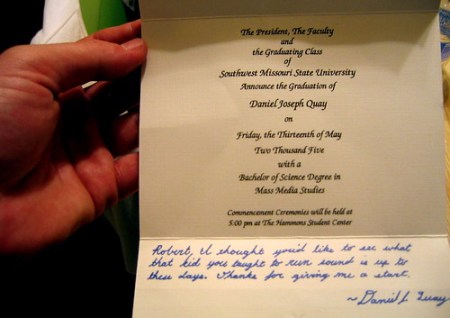 The President, The Faculty
and
the Graduating Class
of
Southwest Missouri State University
Announce the Graduation of
Daniel Joseph Quay
on
Friday, the Thirteenth of May
Two Thousand Five
with a
Bachelor of Science Degree in
Mass Media Studies
Commencement Ceremonies will be held at
8:00 pm at The Hammons Student Center
Robert, I thought you'd like to see what
that kid you taught to run sound is up to
these days. Thanks for giving me a start.
~Daniel J. Quay